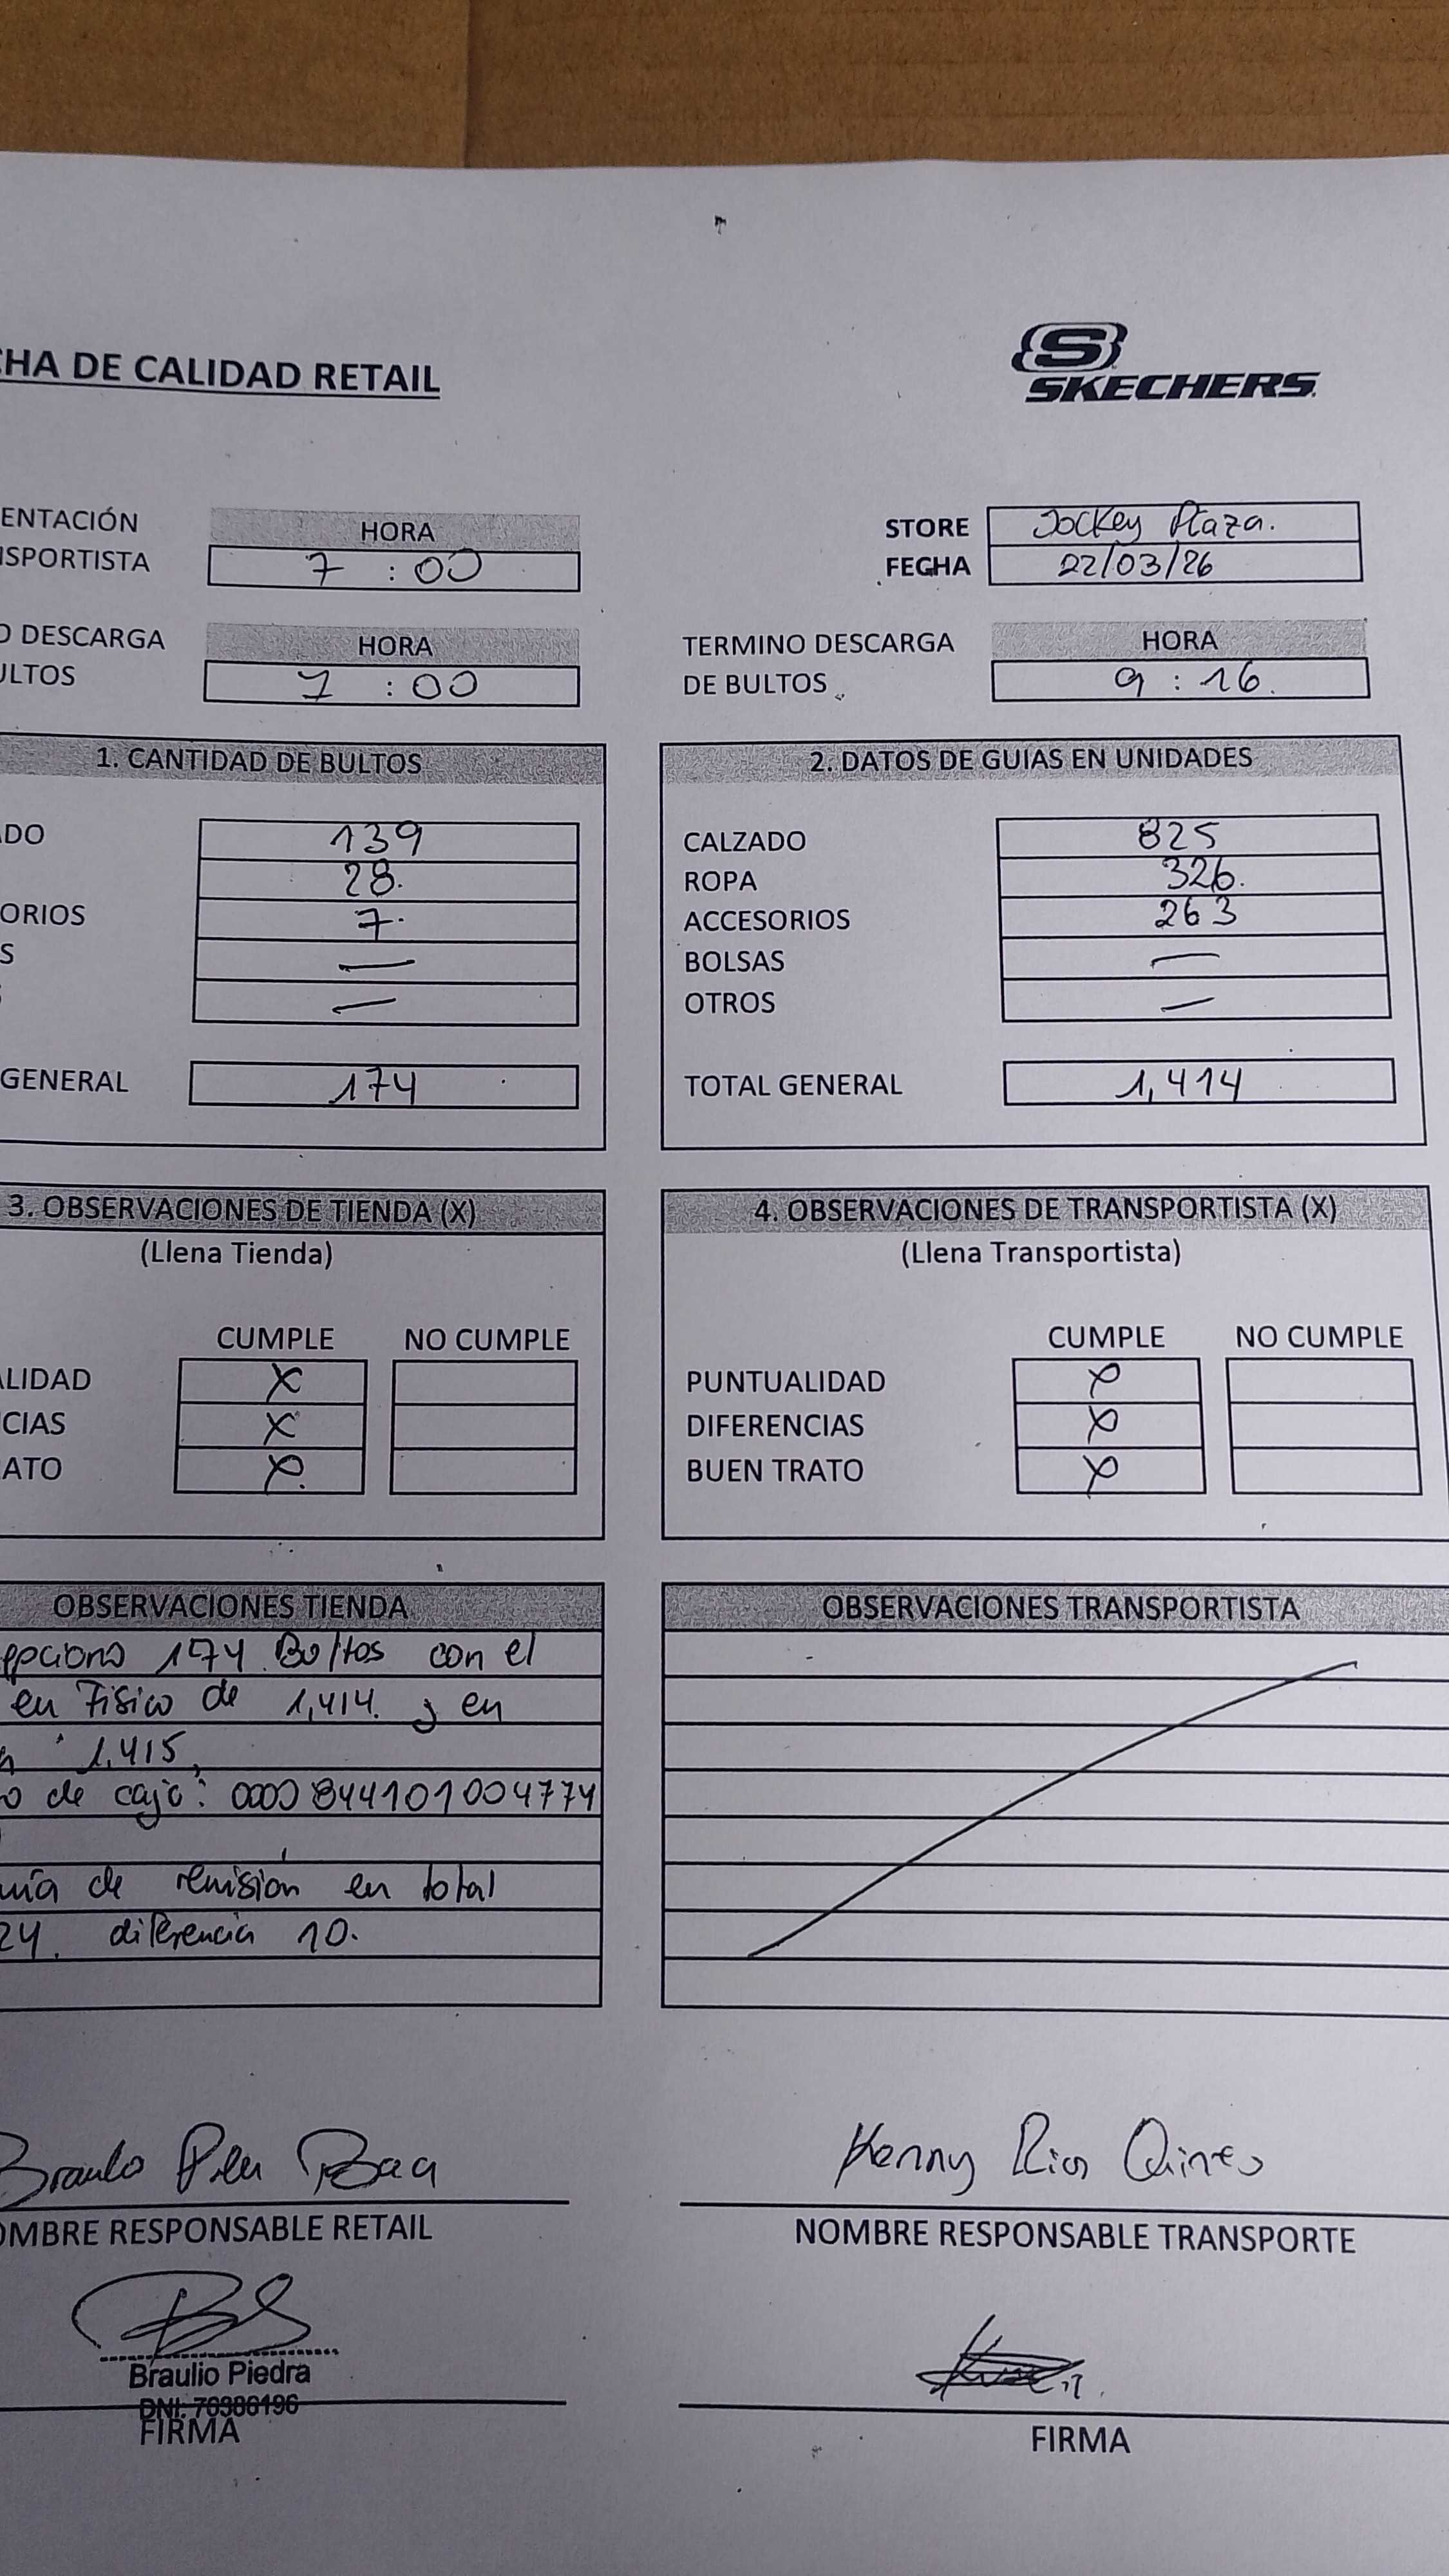 CHA DE CALIDAD RETAIL
SKECHERS
ENTACIÓN
SPORTISTA
HORA
7 : 00
STORE Jockey Plaza.
FECHA 22/03/26
O DESCARGA
ULTOS
HORA
7 : 00
TERMINO DESCARGA
DE BULTOS
HORA
9 : 16.
1. CANTIDAD DE BULTOS
ADO 139
28.
ORIOS 7.
S —
—
GENERAL 174
2. DATOS DE GUIAS EN UNIDADES
CALZADO 825
ROPA 326.
ACCESORIOS 263
BOLSAS —
OTROS —
TOTAL GENERAL 1,414
3. OBSERVACIONES DE TIENDA (X)
(Llena Tienda)
CUMPLE NO CUMPLE
ALIDAD X
CIAS X
ATO X
4. OBSERVACIONES DE TRANSPORTISTA (X)
(Llena Transportista)
CUMPLE NO CUMPLE
PUNTUALIDAD X
DIFERENCIAS X
BUEN TRATO X
OBSERVACIONES TIENDA
epciono 174 Bultos con el
en Fisico de 1,414. y en
1,415,
o de caja: 0000 844101004774
uía de remisión en total
24. diferencia 10.
OBSERVACIONES TRANSPORTISTA
Braulo
OMBRE RESPONSABLE RETAIL
Braulio Piedra
DNI: 70986196
FIRMA
Kenny Rios
NOMBRE RESPONSABLE TRANSPORTE
FIRMA